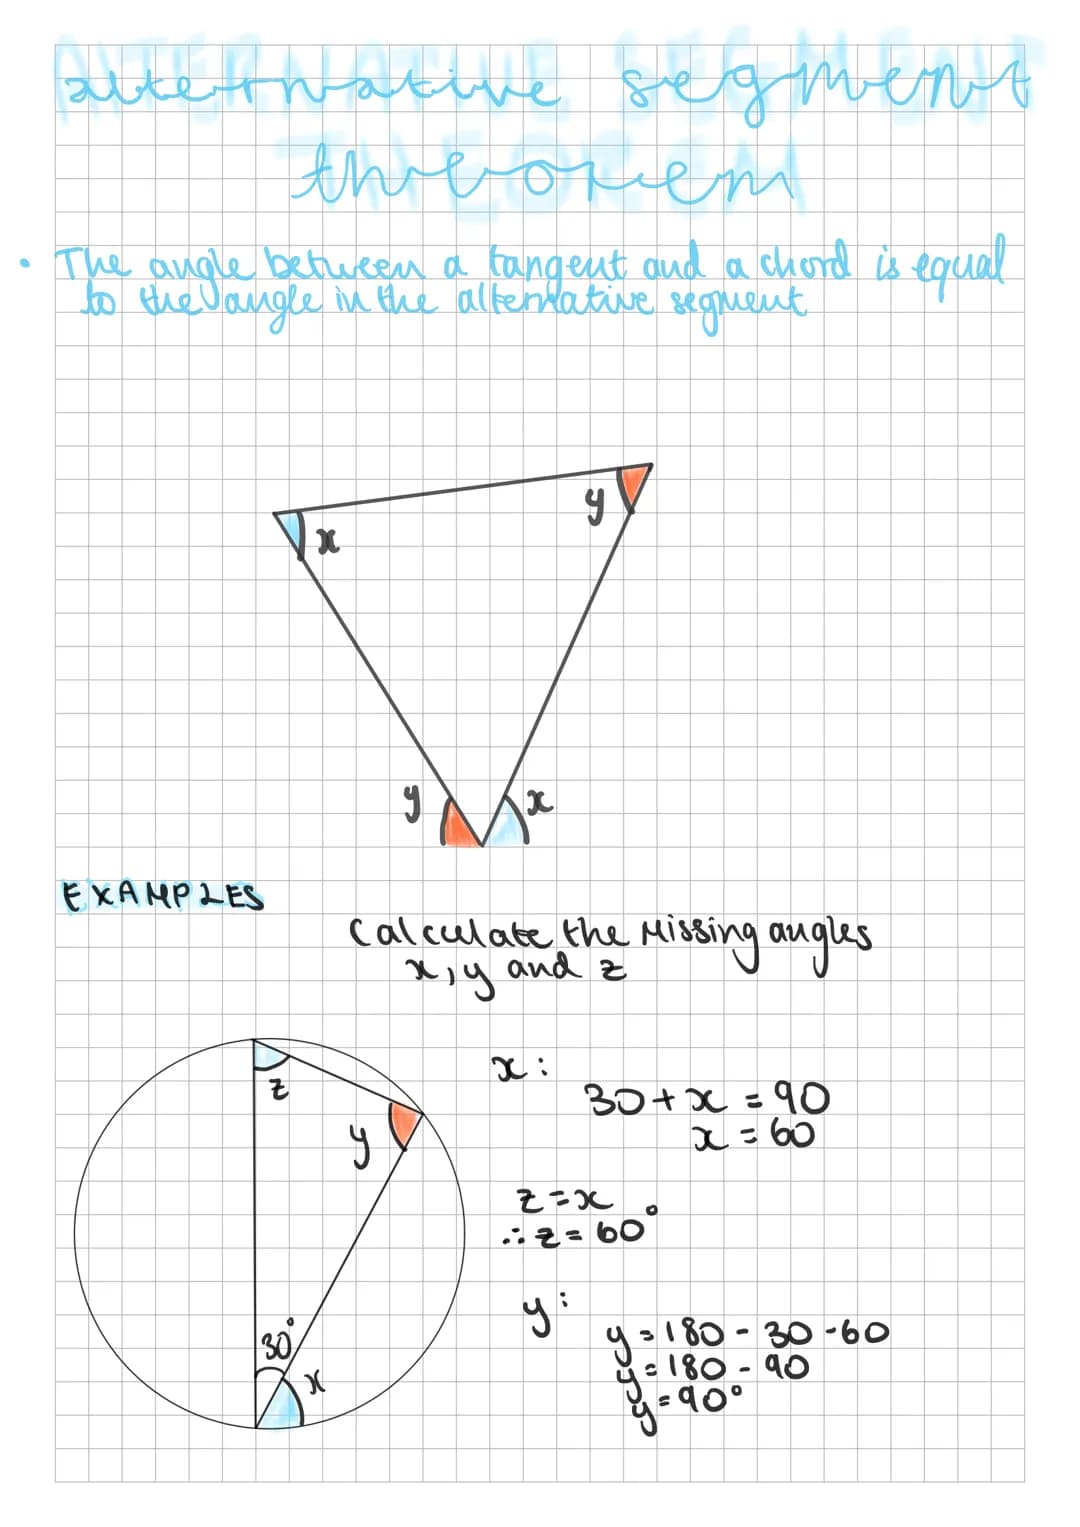 ALTERNATIVE SEGMENT
alternative segment
THEOREM
theorem
• The angle between a tangent and a chord is equal
to the angle in the alternative segment
y
x
y
x
EXAMPLES
Calculate the missing angles
x, y and z
z
y
30°
x
x:
30 + x = 90
x = 60
z = x
∴ z = 60°
y:
y = 180 - 30 - 60
y = 180 - 90
y = 90°